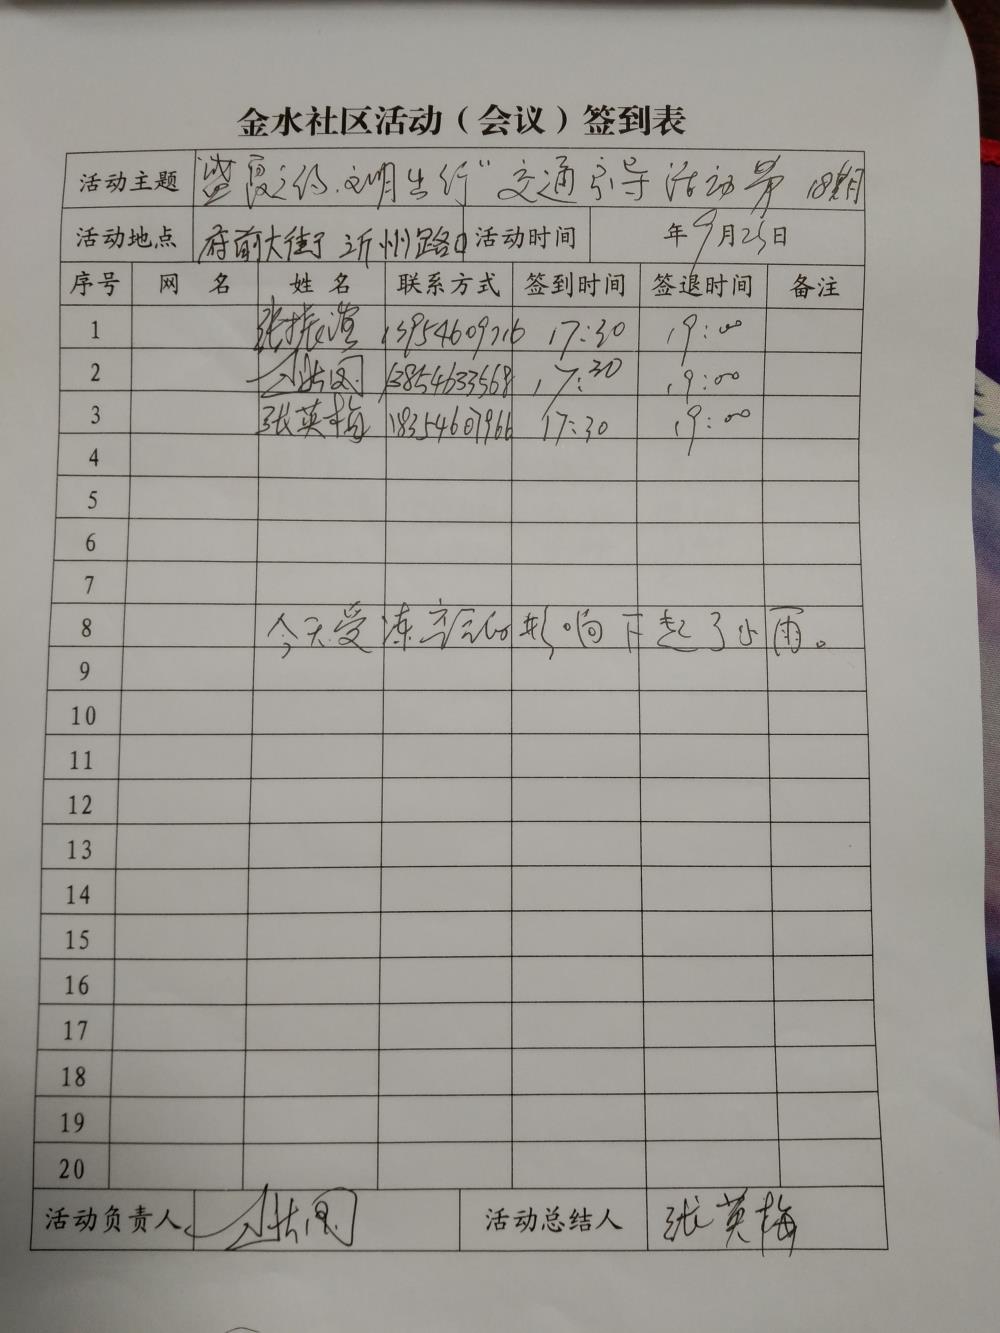 金水社区活动（会议）签到表
活动主题 盛夏之约.文明出行”交通引导活动第18期
活动地点 府前大街沂州路口 活动时间 年9月25日
序号 网名 姓名 联系方式 签到时间 签退时间 备注
1 张振 13954609716 17:30 19:00
2 13854633568 17:30 19:00
3 张英梅 18354607966 17:30 19:00
4
5
6
7
8 今天受 影响下起了小雨。
9
10
11
12
13
14
15
16
17
18
19
20
活动负责人 活动总结人 张英梅